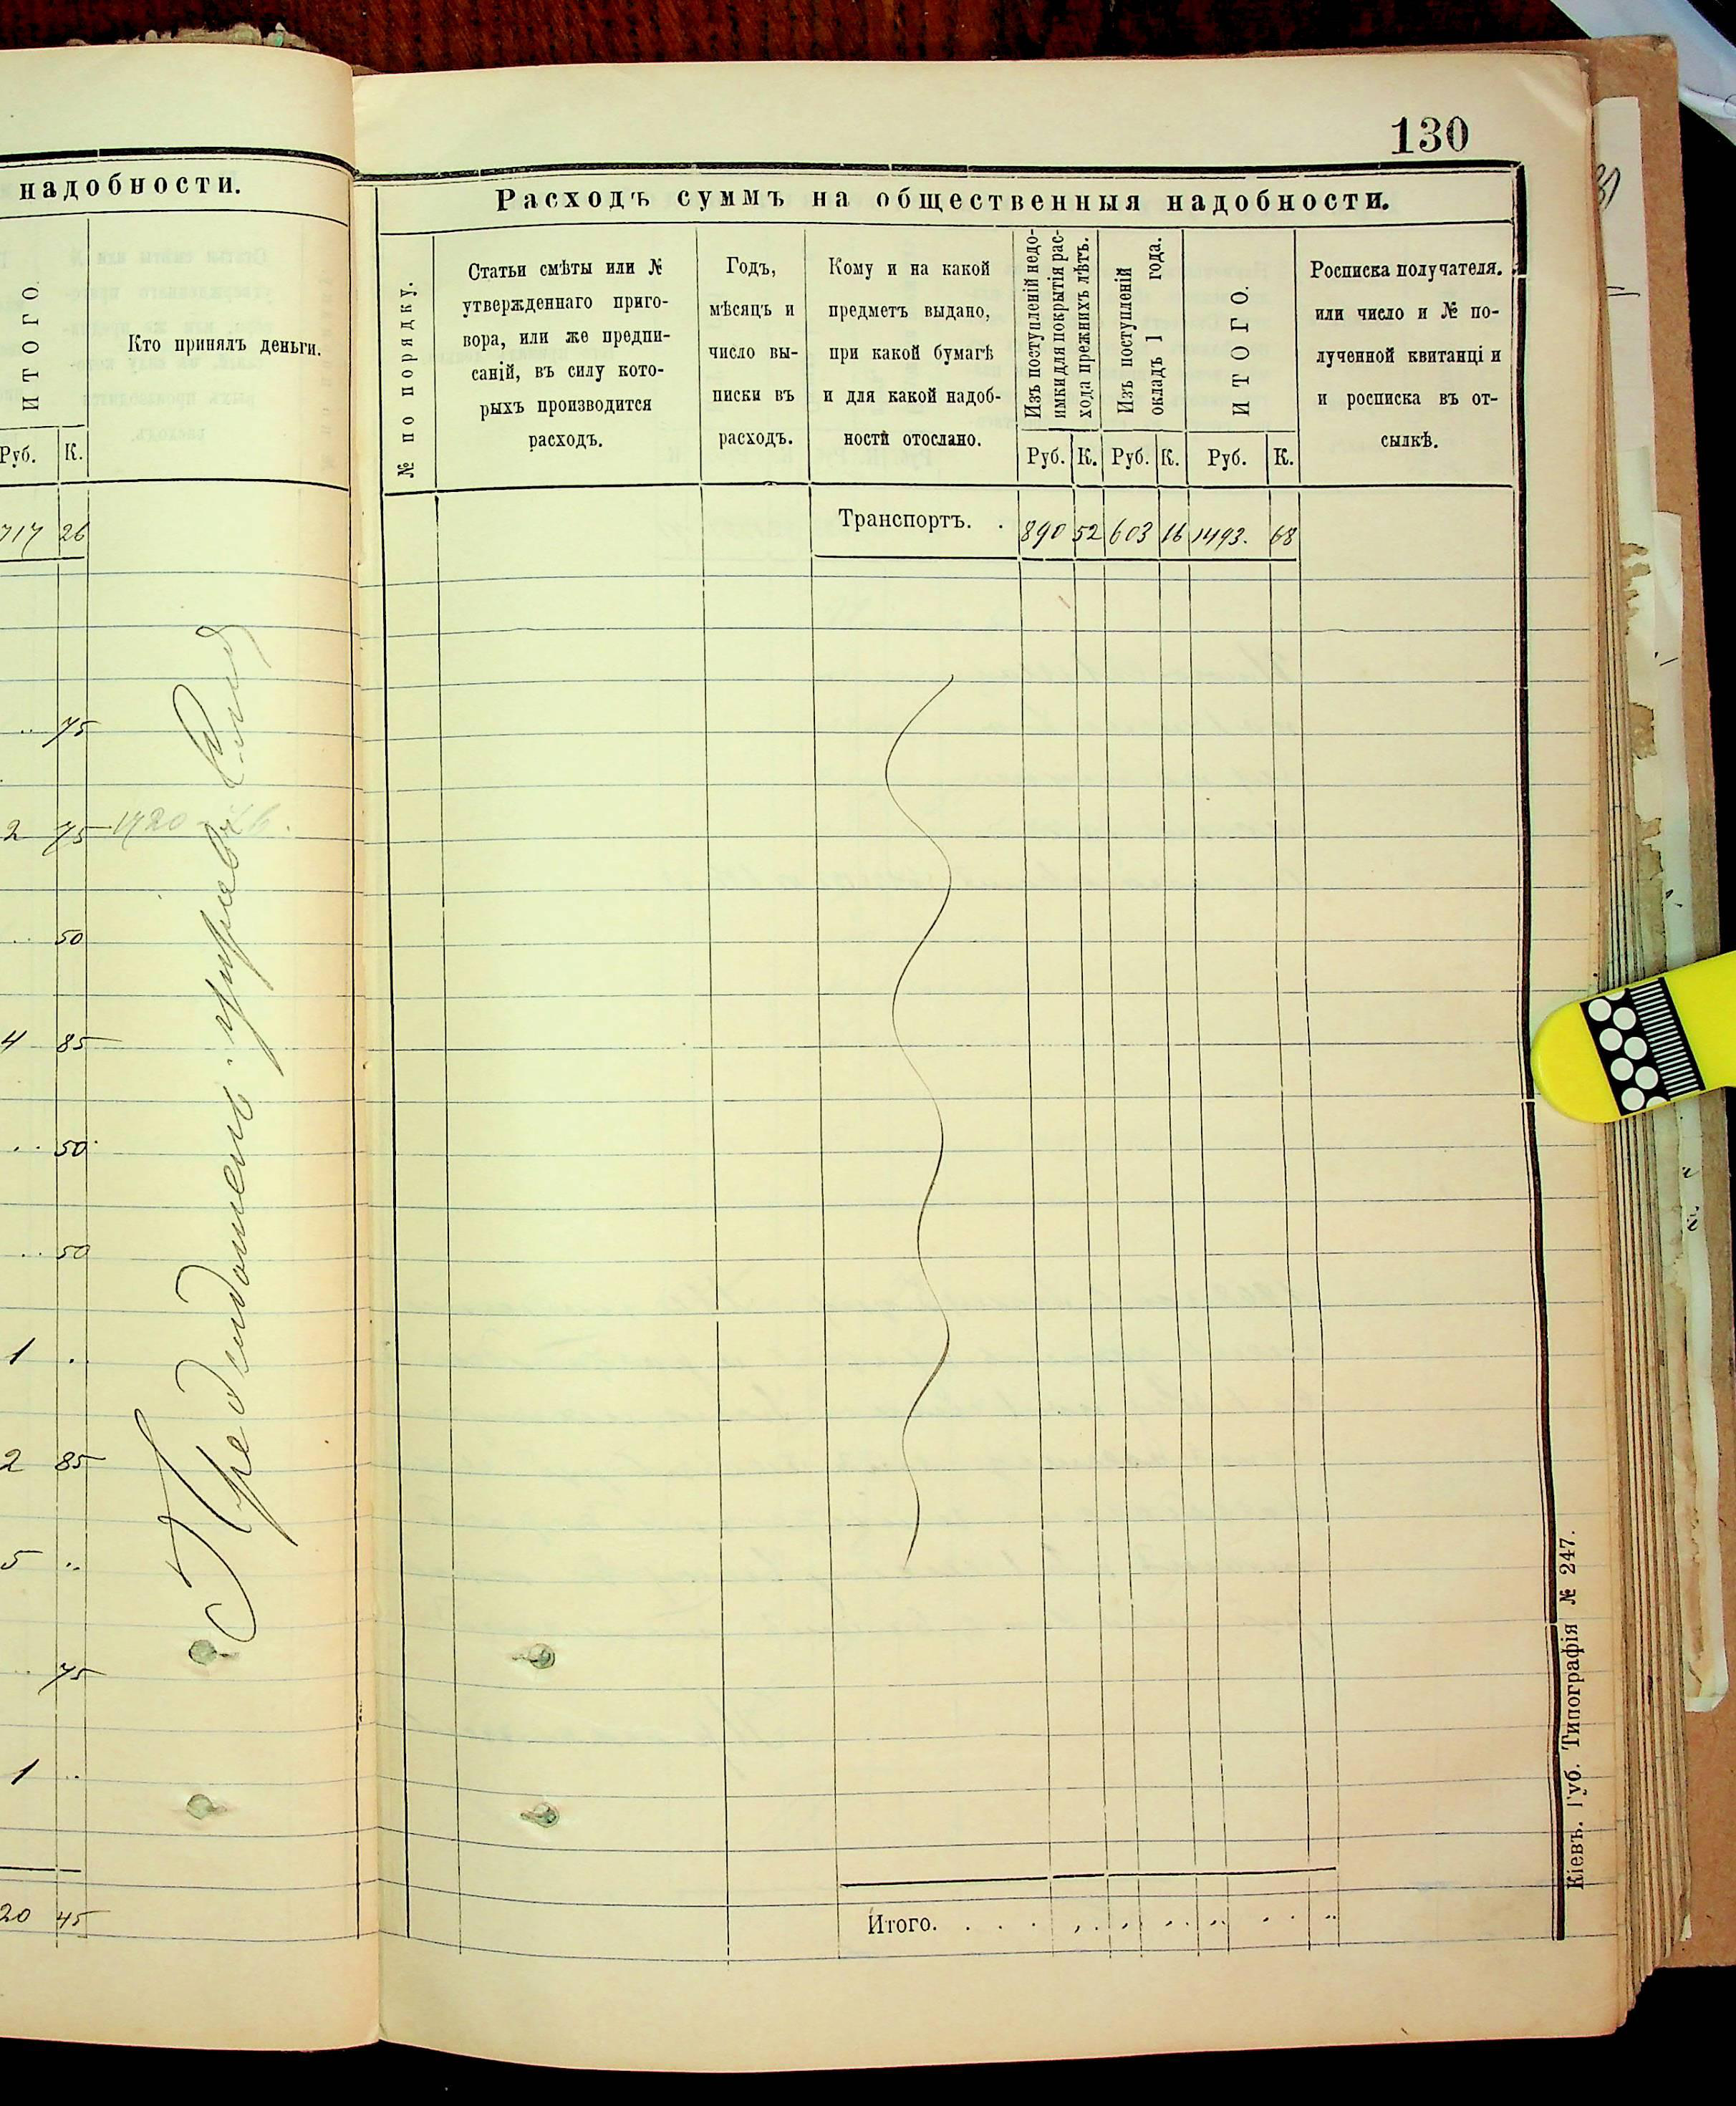 надобности.
ИТОГО.
Кто принялъ деньги.
Руб. К.
717 26
.. 75
2 75
1720
.. 50
4 85
.. 50
.. 50
1 ..
2 85
5 ..
.. 75
1 ..
20 45
130
Расходъ суммъ на общественныя надобности.
№ по порядку.
Статьи смѣты или №
утвержденнаго приго-
вора, или же предпи-
саній, въ силу кото-
рыхъ производится
расходъ.
Годъ,
мѣсяцъ и
число вы-
писки въ
расходъ.
Кому и на какой
предметъ выдано,
при какой бумагѣ
и для какой надоб-
ности отослано.
Изъ поступленій недо-
имки для покрытія рас-
хода прежнихъ лѣтъ.
Изъ поступленій
окладъ 1 года.
ИТОГО.
Росписка получателя.
или число и № по-
лученной квитанціи
и росписка въ от-
сылкѣ.
Руб. К. Руб. К. Руб. К.
Транспортъ. . 890 52 603 16 1493. 68
Итого. . . .
Кіевъ. Губ. Типографія № 247.